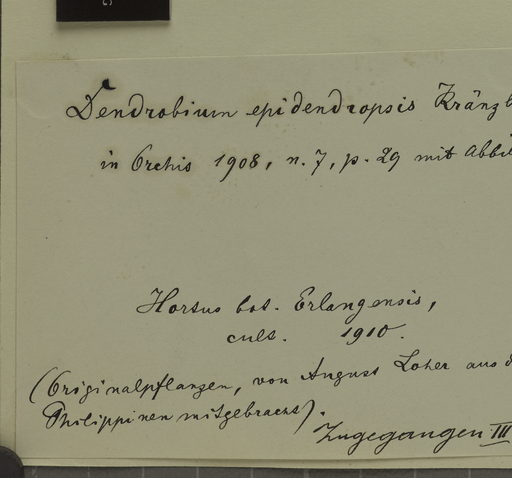 Dendrobium epidendropsis Kränzl
in Orchis 1908, n. 7, p. 29 mit Abbil
Hortus bot. Erlangensis,
cult. 1910.
(Originalpflanzen, von August Loher aus d
Philippinen mitgebracht).
Zugegangen III